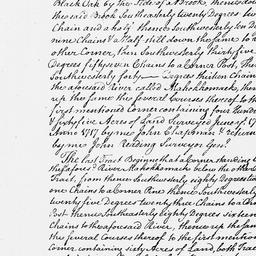 Black Oak by the Side of a Brook, thence down
the said Brook Southeasterly twenty Degrees five
Chain and a half thence Southwesterly
nine Chains & a Half still down the same to a
other Corner, then Southwesterly thirty five
Degrees fifty seven Chains to a Corner Post, The
Southwesterly forty — Degrees thirteen Chains
the aforesaid River called Mahokkomack, then
up the same the several Courses thereof to the
first mentioned Corner containing four Hund
& sixty five Acres of Land Surveyed
Anno 1717 by me John Chapman & return
by me John Reading Surveyor Genl.
The last Tract Begins at a Corner standing
the aforesd River Mahokkomack below the other
Tract, from thence Southeasterly eighty Degrees
one Chains to a Corner Pine thence Southwesterly
twenty five Degrees twenty three Chains to a
Post thence Southwesterly eighty Degrees sixteen
Chains to the aforesaid River, thence up the same
the several Courses thereof to the first mention
Corner containing sixty Acres of Land, both Tract